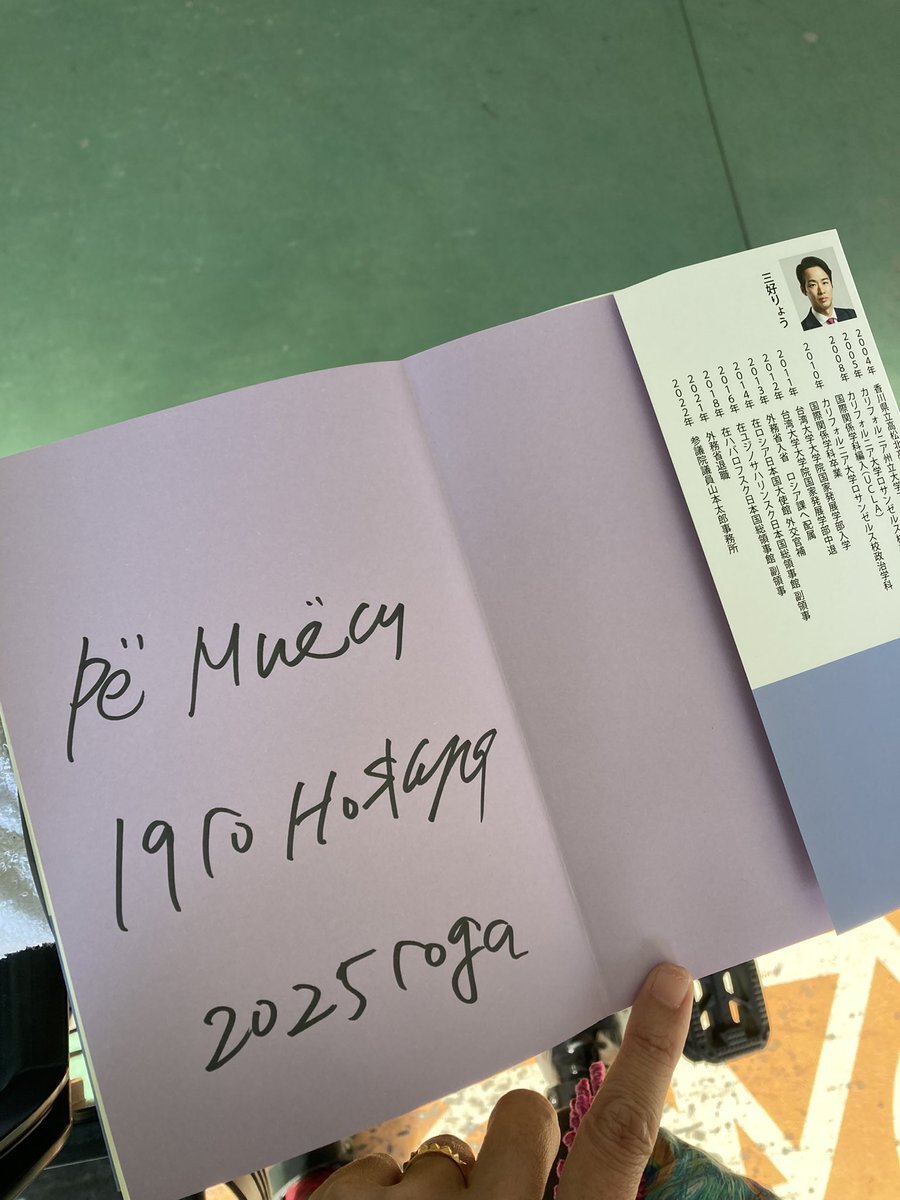 Рё Миёси
19го Ноября
2025 года
三好りょう
2004年 香川県立高松北高
2005年 カリフォルニア州立大学
2008年 カリフォルニア大学ロサンゼルス校政治学科
国際関係学科編入(UCLA)
2010年 カリフォルニア大学ロサンゼルス校政治学科
国際関係学科卒業
2011年 台湾大学大学院国家発展学部入学
2012年 台湾大学大学院国家発展学部中退
2013年 外務省入省 ロシア課へ配属
2014年 在ロシア日本国大使館 外交官補
2016年 在ユジノサハリンスク日本国総領事館 副領事
2018年 在ハバロフスク日本国総領事館 副領事
2021年 外務省退職
2022年 参議院議員山本太郎事務所